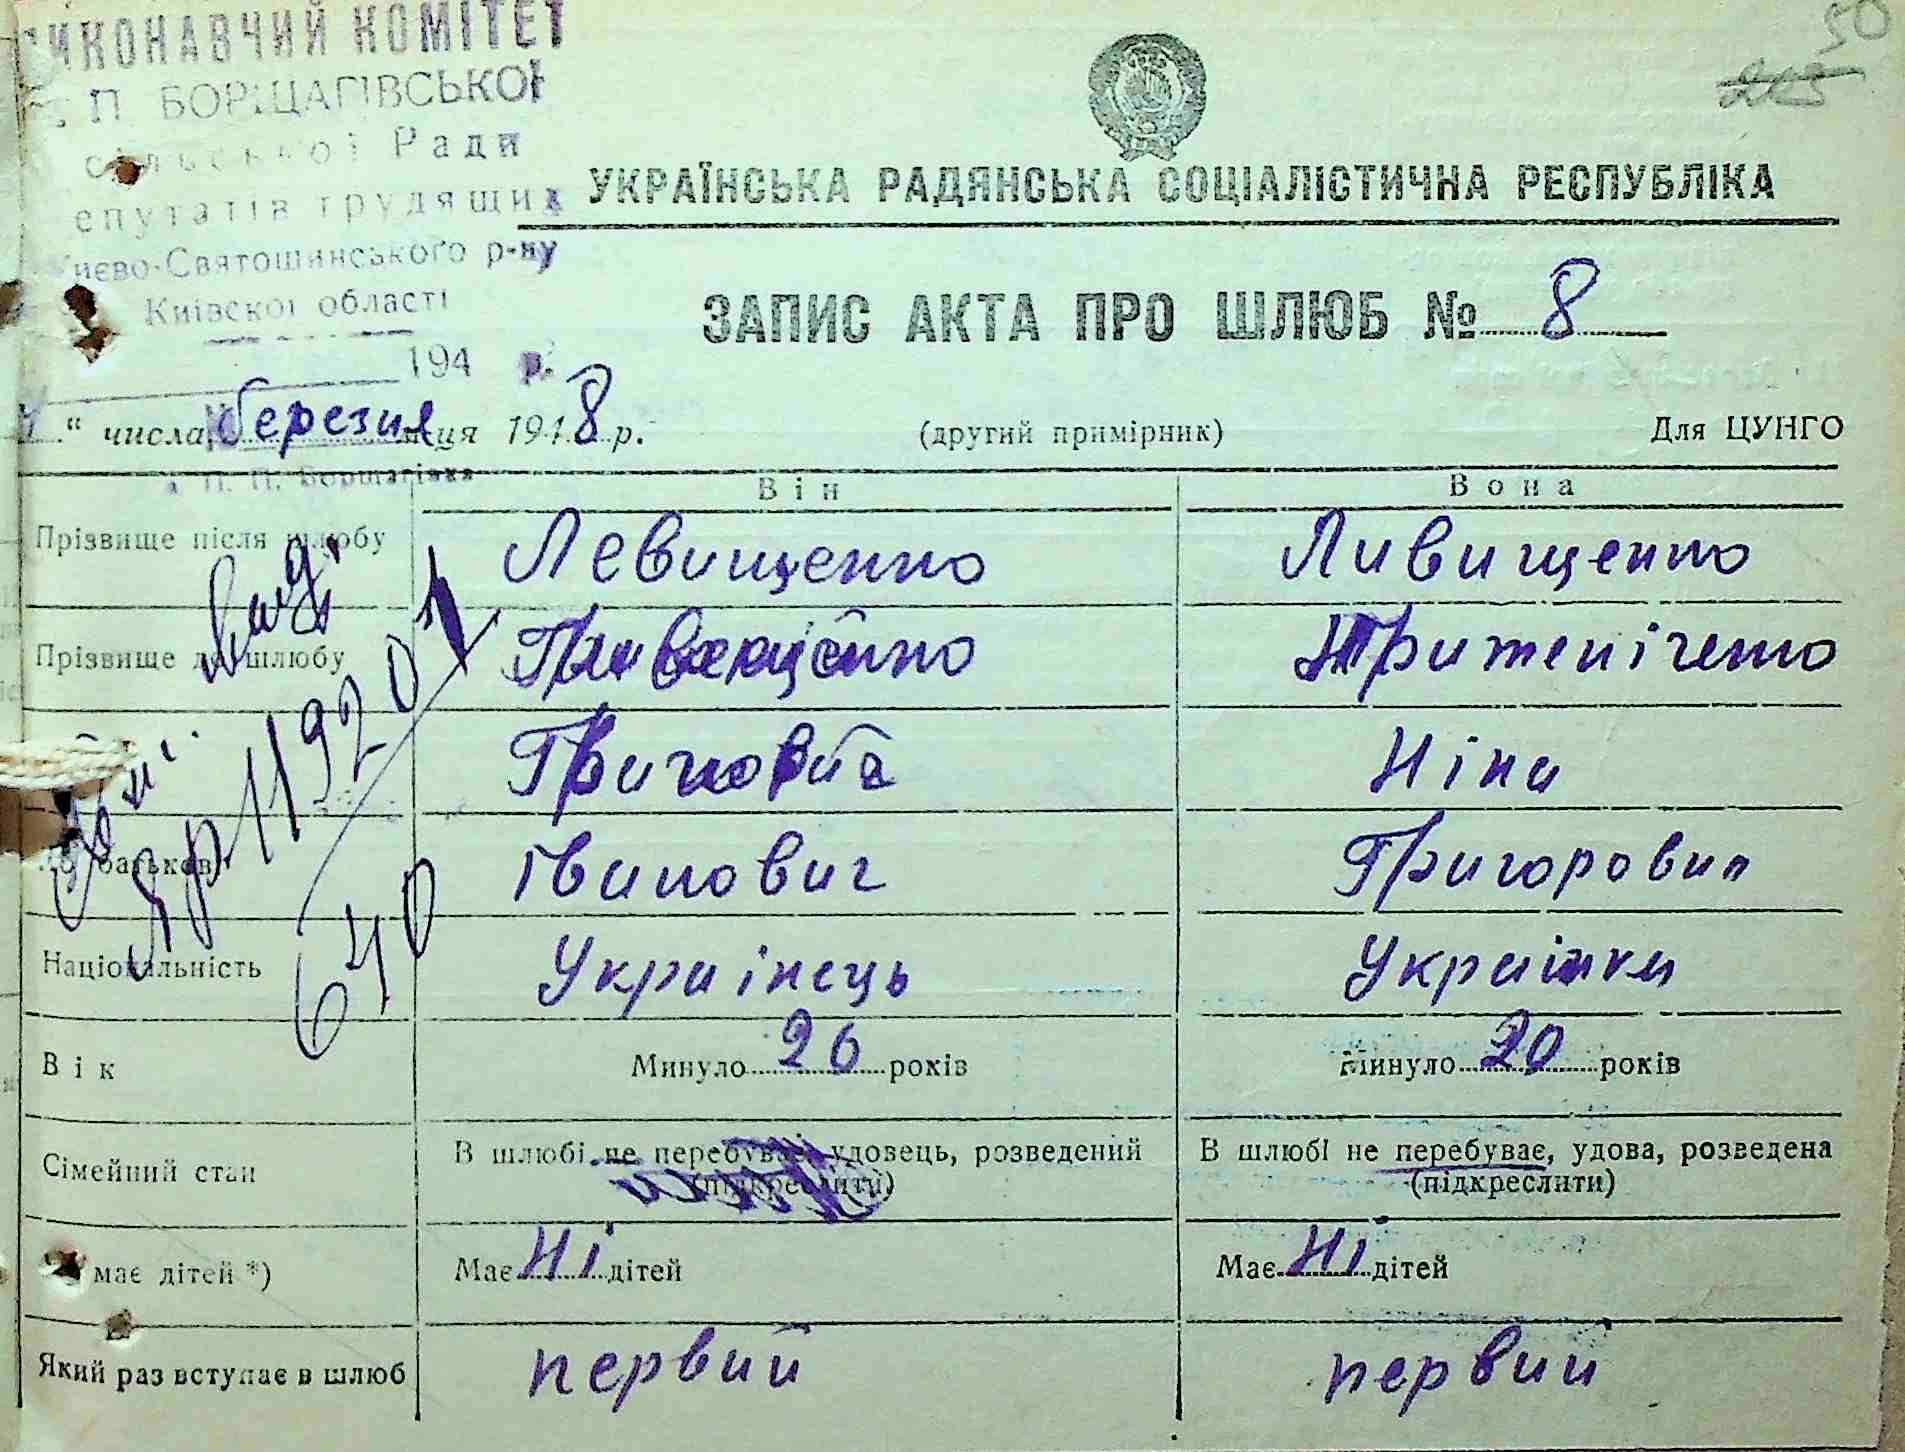 ИКОНАВЧИЙ КОМІТЕТ
П БОРЩАГІВСЬКОЇ
сільської Ради
епутатів трудящих
иєво-Святошинського р-ну
Київскої області
194 р.
50
213
УКРАЇНСЬКА РАДЯНСЬКА СОЦІАЛІСТИЧНА РЕСПУБЛІКА
ЗАПИС АКТА ПРО ШЛЮБ № 8
“ числа березня місяця 1948 р. (другий примірник) Для ЦУНГО
П. П. Борщагівка
Він Вона
Прізвище після шлюбу Левищенко Ливищенко
Прізвище до шлюбу
Ніна
По батькові Іванович Григоровна
Національність Українець Українка
Вік Минуло 26 років Минуло 20 років
Сімейний стан В шлюбі не перебуває, удовець, розведений (підкреслити) В шлюбі не перебуває, удова, розведена (підкреслити)
має дітей *) Має ні дітей Має ні дітей
Який раз вступає в шлюб первий первий
119201
640